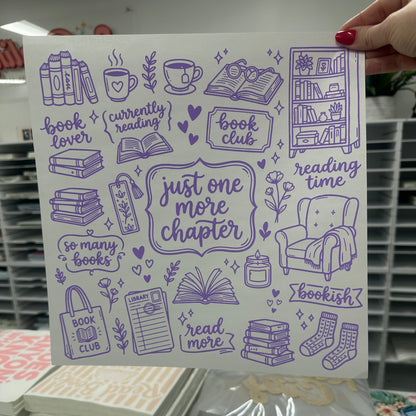 book
lover
currently
reading
book
club
reading
time
just one
more
chapter
so many
books
LIBRARY
BOOK
CLUB
read
more
bookish